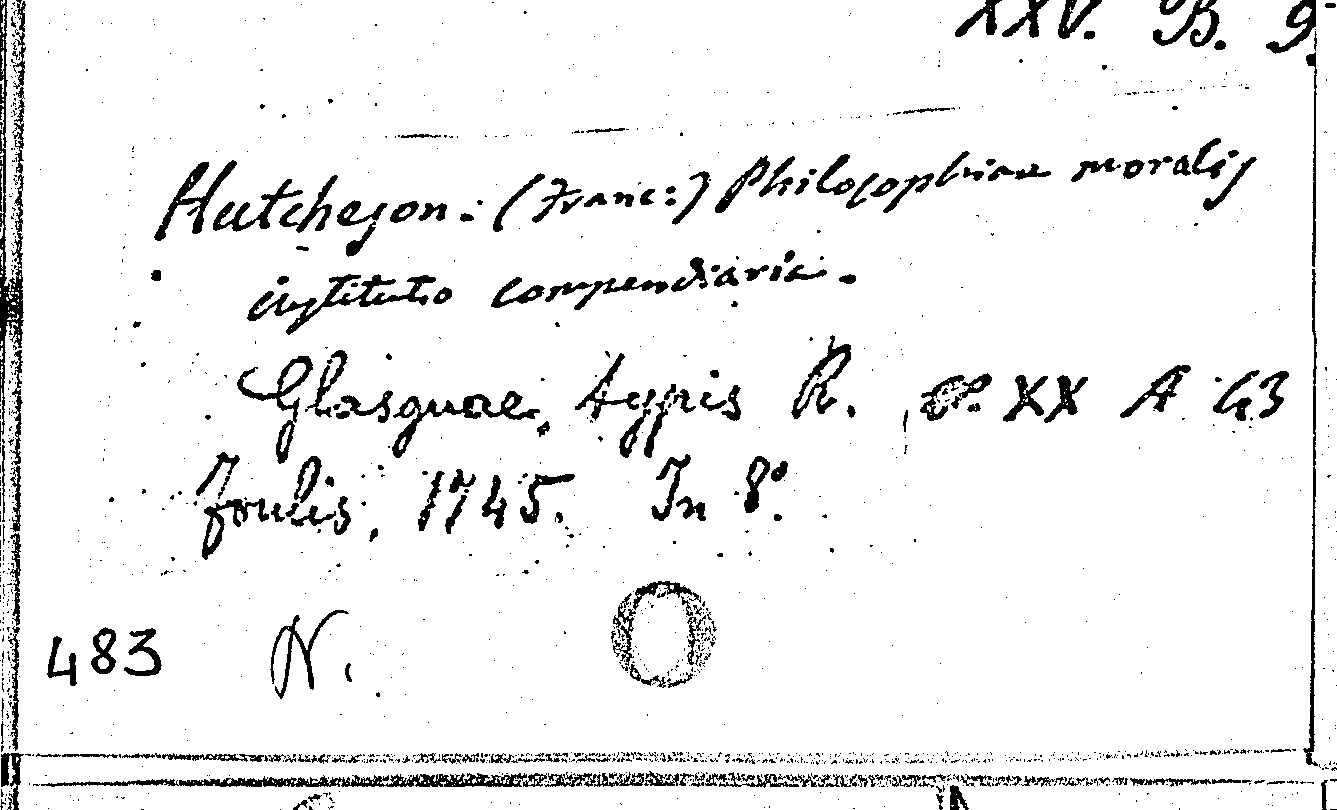 XXV. B. 9.
Hutcheson. (Franc:) Philosophiae moralis
institutio compendiaria.
Glasguae, typis R. XX A 43
Foulis, 1745. In 8°.
483 N.